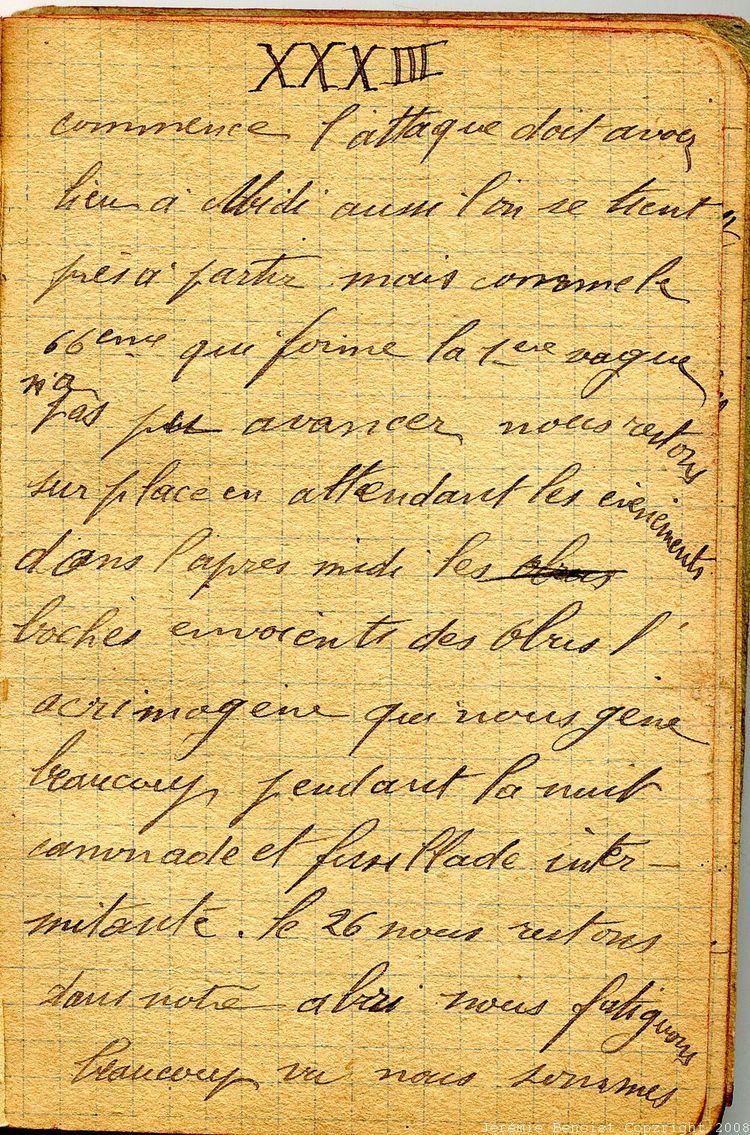 XXXIII
commence l'attaque doit avoir
lieu à Midi aussi l'on se tient
près à partir mais comme le
66eme qui forme la 1ere vague
n'a
pas pu avancer nous restons
sur place en attendant les évènements
dans l'après midi les obus
boches envoients des obus l'
acrimogène qui nous gène
beaucoup pendant la nuit
cannonade et fusillade inter-
mitante. le 26 nous restons
dans notre abri nous fatiguons
beaucoup vu nous sommes
Jeremie Benoist Copyright 2008